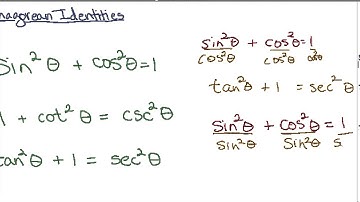 nagorean Identities
sin²θ + cos²θ = 1
1 + cot²θ = csc²θ
tan²θ + 1 = sec²θ
sin²θ/cos²θ + cos²θ/cos²θ = 1/cos²θ
tan²θ + 1 = sec²θ
sin²θ/sin²θ + cos²θ/sin²θ = 1/s